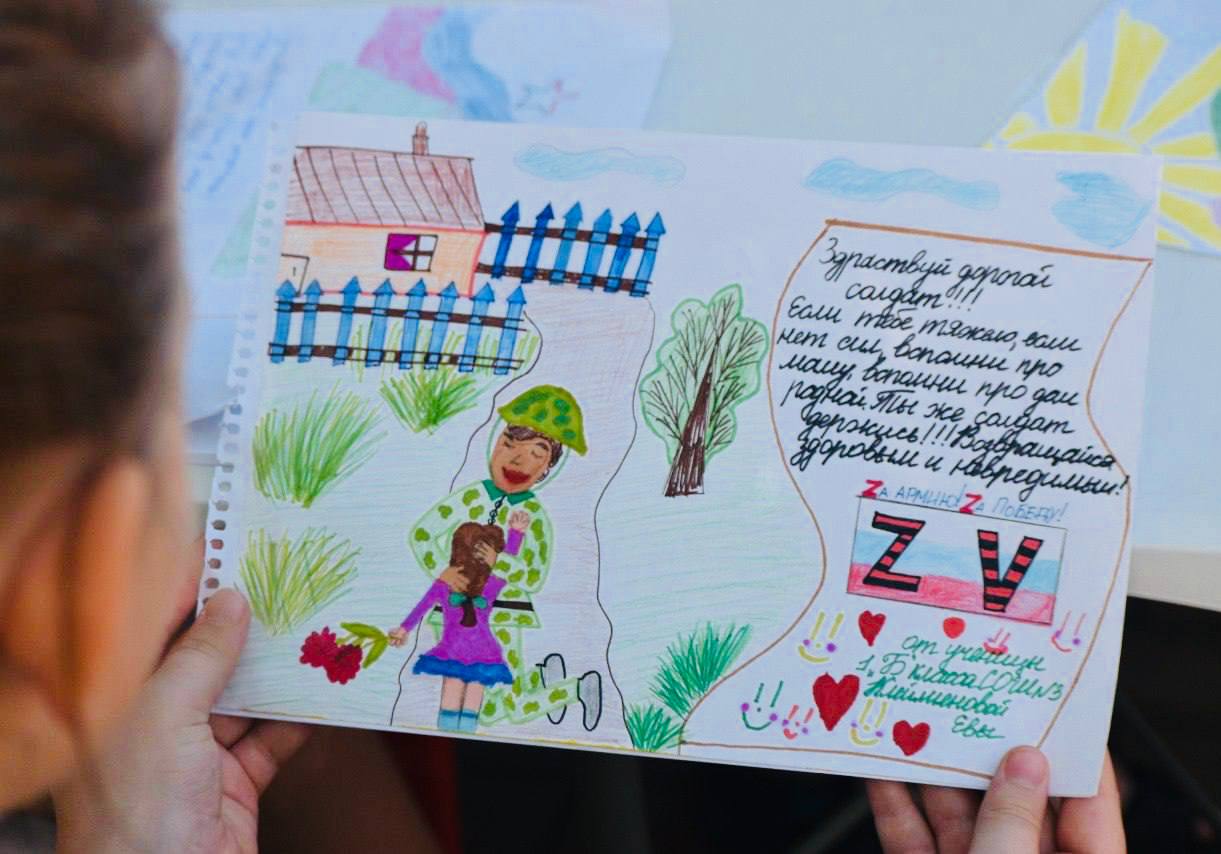 Здраствуй дорогой
солдат!!!
Если тебе тяжело, если
нет сил, вспомни про
маму, вспомни про дом
родной. Ты же солдат
держись!!! Возвращайся
здоровым и невредимым!
Zа АРМИЮ! Zа ПОБЕДУ!
Z V
от ученицы
1„Б класса СОШ№3
Клименовой
Евы